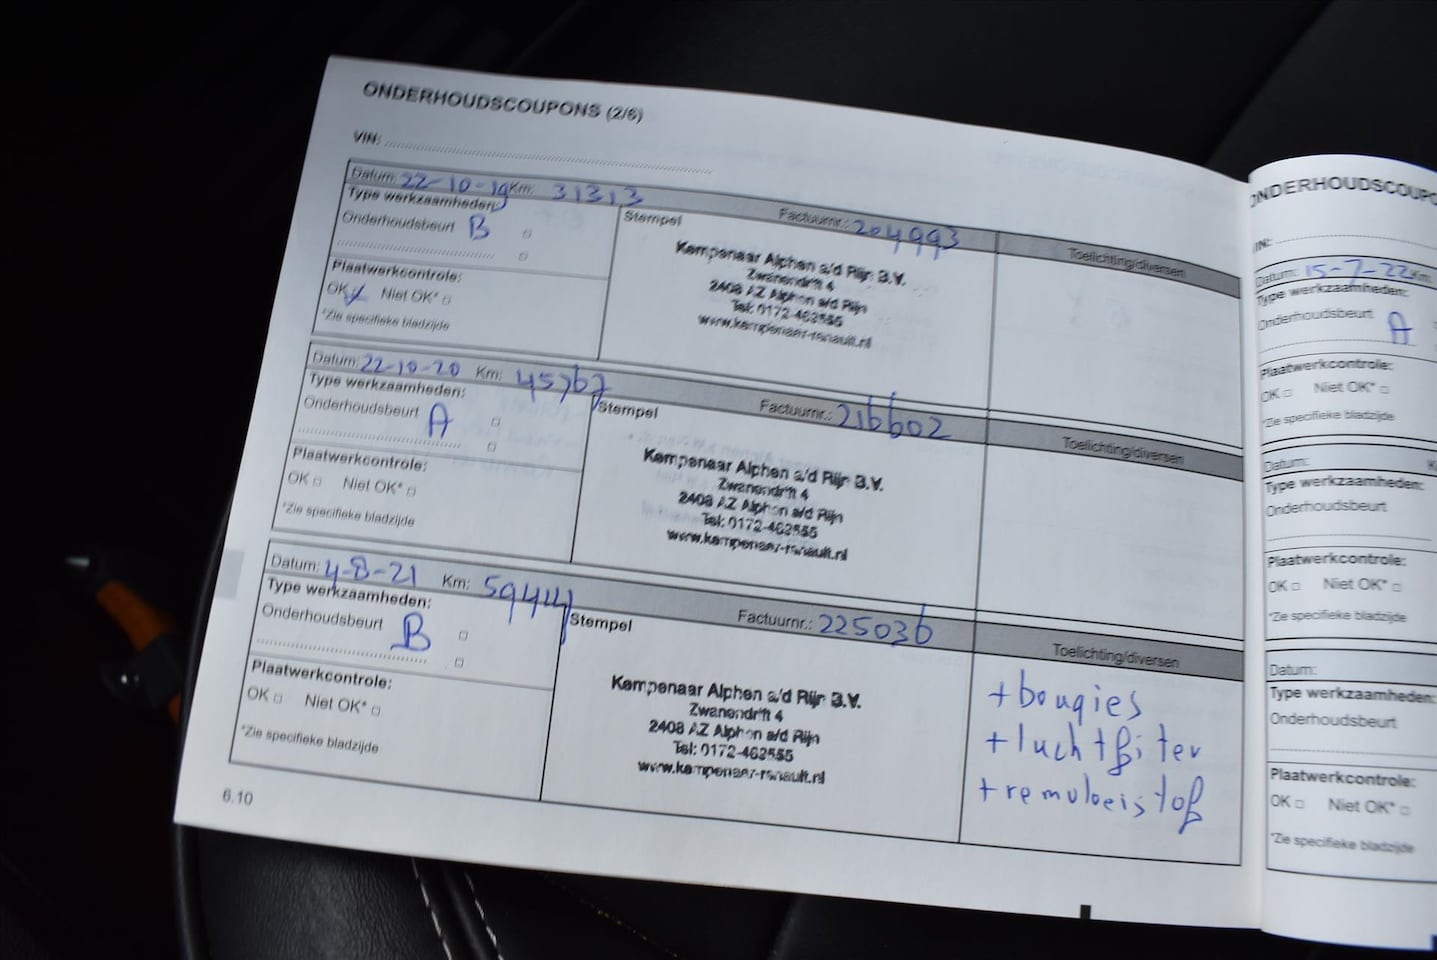 ONDERHOUDSCOUPONS (2/6)
VIN:
Datum: 22-10-19 Km: 31313 Factuurnr.: 204993
Type werkzaamheden:
Onderhoudsbeurt B
Stempel
Toelichting/diversen
Kempenaar Alphen a/d Rijn B.V.
Zwanendrift 4
2408 AZ Alphen a/d Rijn
Tel: 0172-462555
www.kempenaar-renault.nl
Plaatwerkcontrole:
OK Niet OK*
*Zie specifieke bladzijde
Datum: 22-10-20 Km: 45767 Factuurnr.: 216602
Type werkzaamheden:
Onderhoudsbeurt A
Stempel
Toelichting/diversen
Kempenaar Alphen a/d Rijn B.V.
Zwanendrift 4
2408 AZ Alphen a/d Rijn
Tel: 0172-462555
www.kempenaar-renault.nl
Plaatwerkcontrole:
OK Niet OK*
*Zie specifieke bladzijde
Datum: 4-8-21 Km: 59444 Factuurnr.: 225036
Type werkzaamheden:
Onderhoudsbeurt B
Stempel
Toelichting/diversen
Kempenaar Alphen a/d Rijn B.V.
Zwanendrift 4
2408 AZ Alphen a/d Rijn
Tel: 0172-462555
www.kempenaar-renault.nl
+ bougies
+ luchtfilter
+ remvloeistof
Plaatwerkcontrole:
OK Niet OK*
*Zie specifieke bladzijde
6.10
ONDERHOUDSCOUPO
IN:
Datum: 15-7-22 Km:
Type werkzaamheden:
Onderhoudsbeurt A
Plaatwerkcontrole:
OK Niet OK*
*Zie specifieke bladzijde
Datum: K
Type werkzaamheden:
Onderhoudsbeurt
Plaatwerkcontrole:
OK Niet OK*
*Zie specifieke bladzijde
Datum:
Type werkzaamheden:
Onderhoudsbeurt
Plaatwerkcontrole:
OK Niet OK*
*Zie specifieke bladzijde